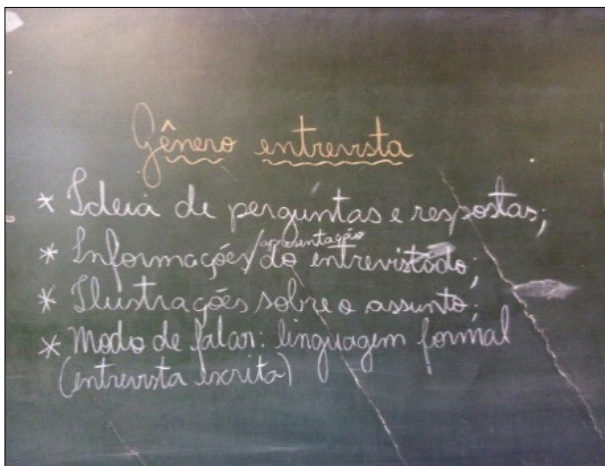 Gênero entrevista
* Ideia de perguntas e respostas;
* Informações/apresentação do entrevistado;
* Ilustrações sobre o assunto;
* Modo de falar: linguagem formal
(entrevista escrita)